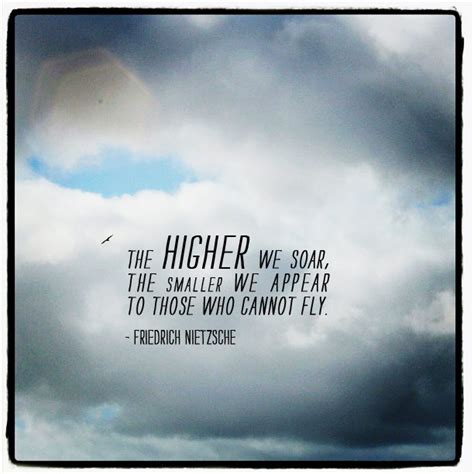 THE HIGHER WE SOAR,
THE SMALLER WE APPEAR
TO THOSE WHO CANNOT FLY.
~ FRIEDRICH NIETZSCHE